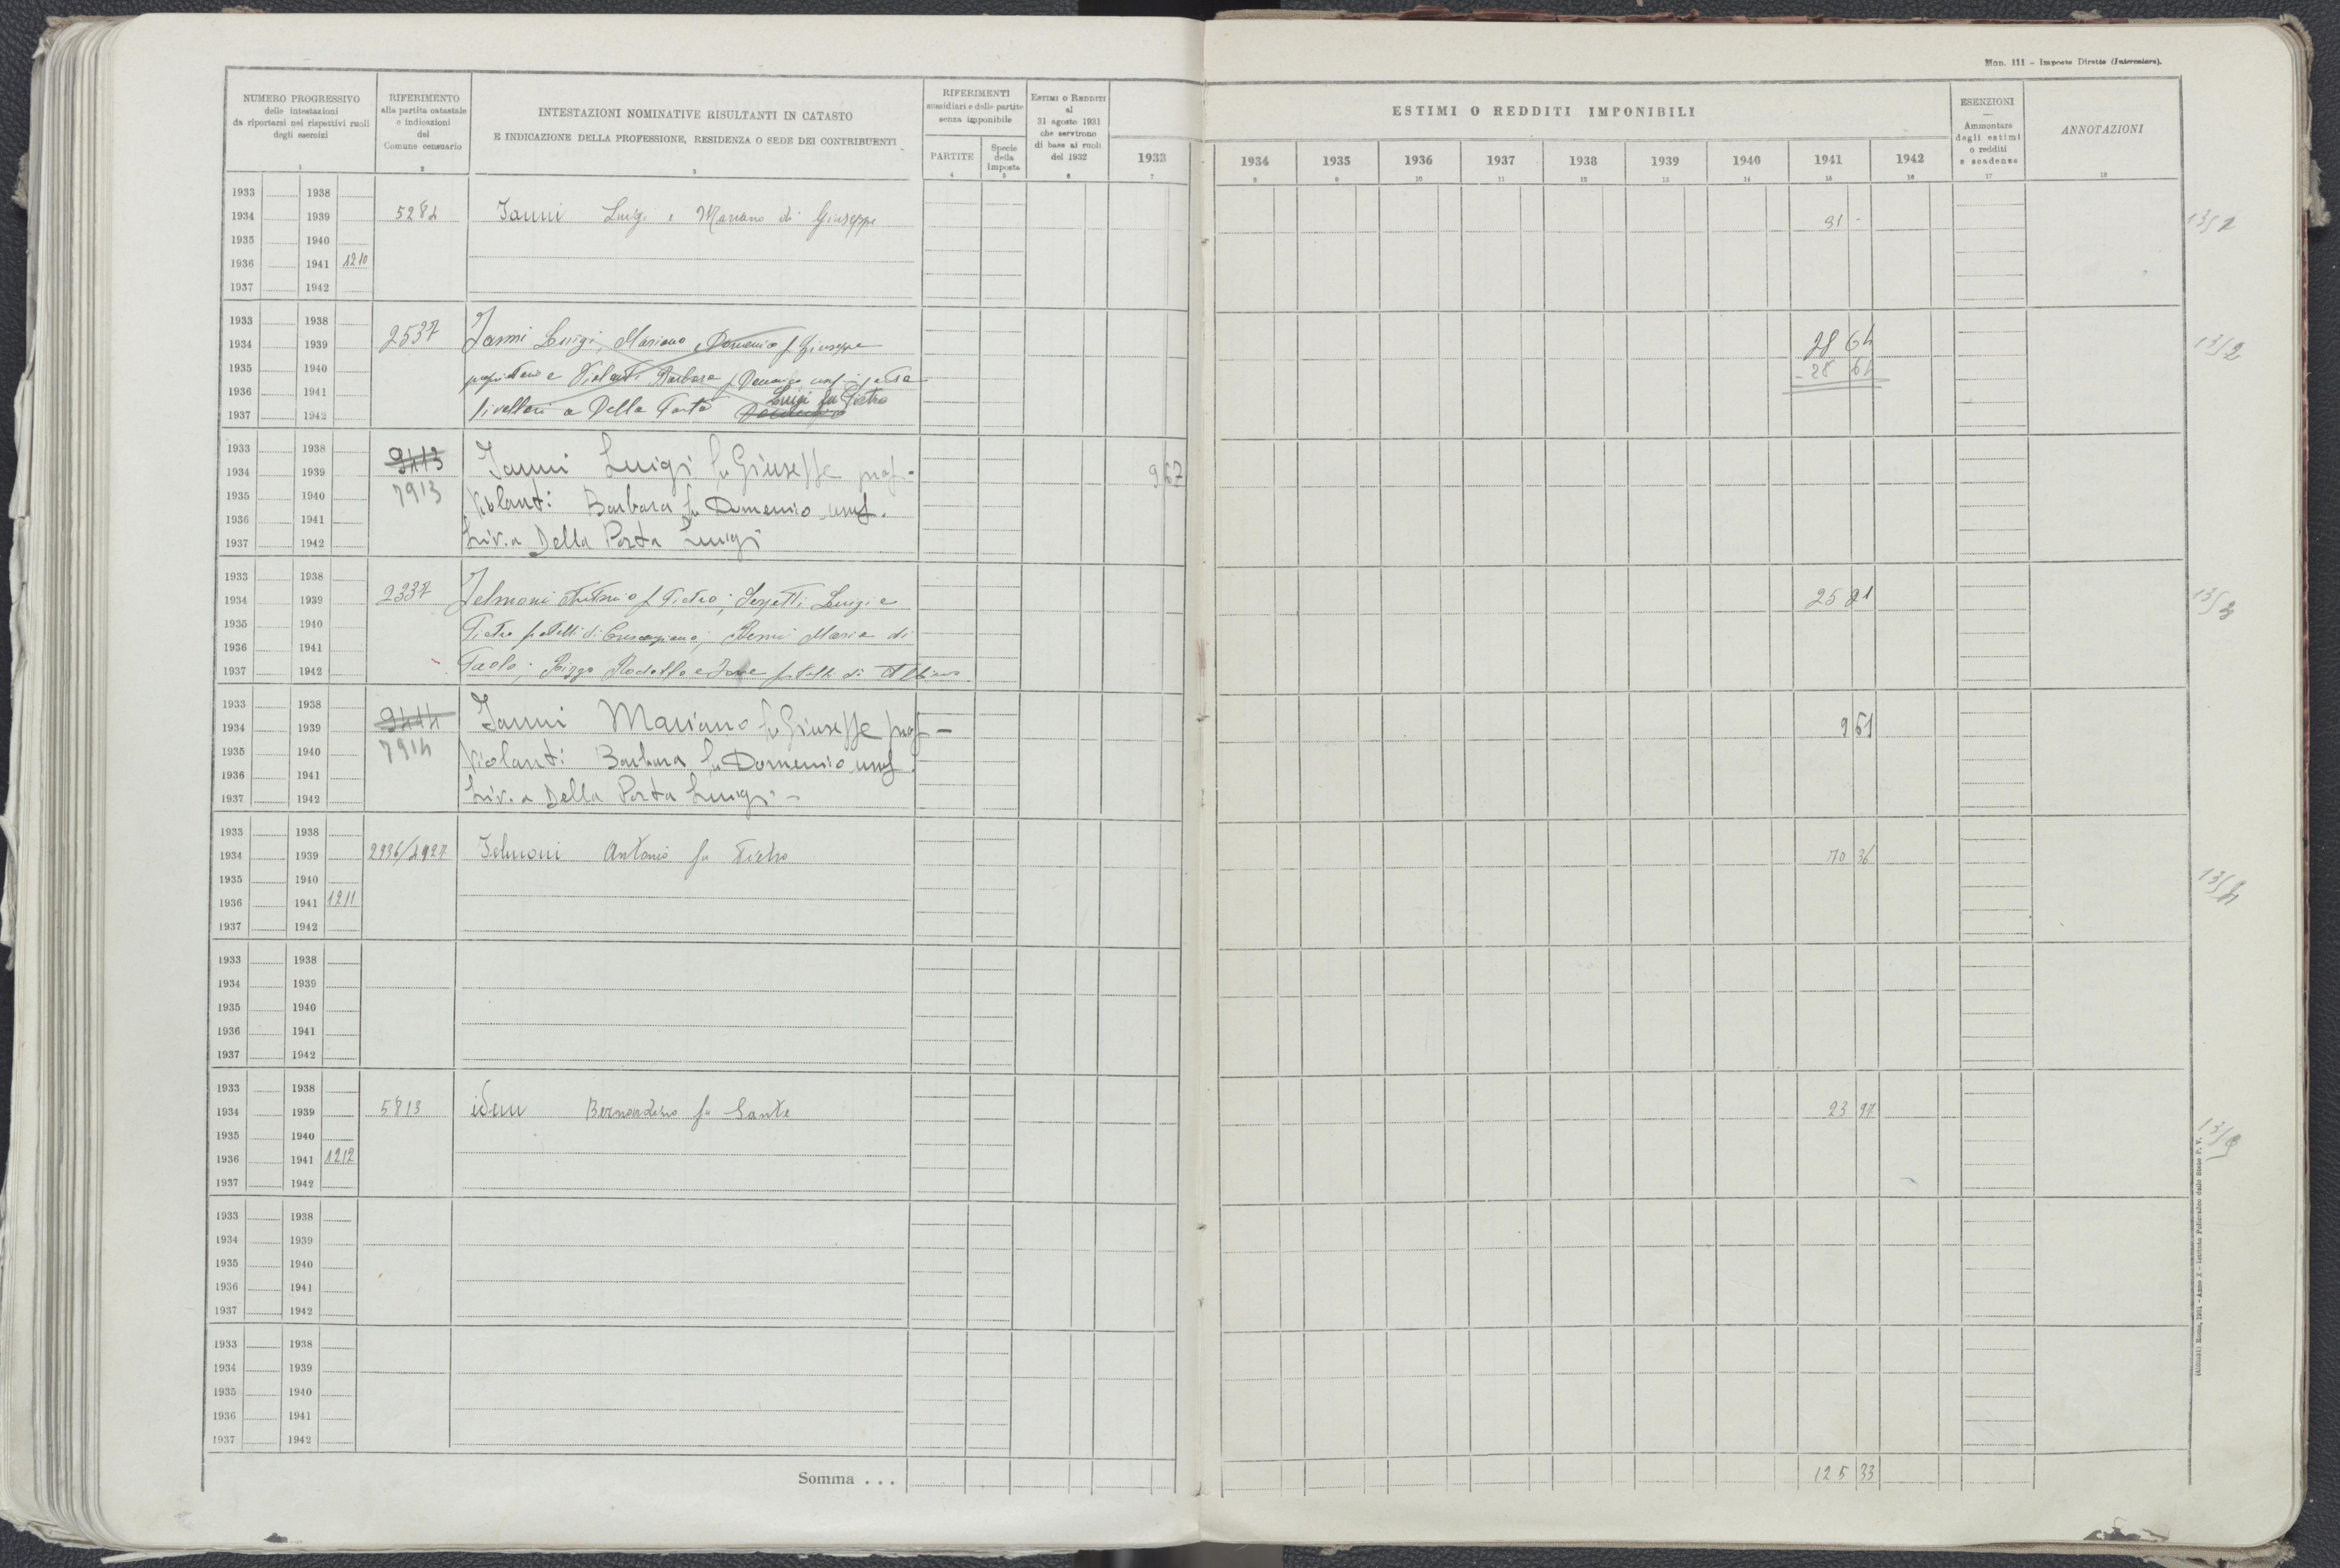 Mon. 111 - Imposte Dirette (Intercalare).
NUMERO PROGRESSIVO
delle intestazioni
da riportarsi nei rispettivi ruoli
degli esercizi
1
RIFERIMENTO
alla partita catastale
e indicazioni
del
Comune censuario
2
INTESTAZIONI NOMINATIVE RISULTANTI IN CATASTO
E INDICAZIONE DELLA PROFESSIONE, RESIDENZA O SEDE DEI CONTRIBUENTI
3
RIFERIMENTI
sussidiari e delle partite
senza imponibile
PARTITE
4
Specie
della
Imposta
5
ESTIMI O REDDITI
al
31 agosto 1931
che servirono
di base ai ruoli
del 1932
6
ESTIMI O REDDITI IMPONIBILI
1933 1934 1935 1936 1937 1938 1939 1940 1941 1942
7 8 9 10 11 12 13 14 15 16
ESENZIONI
Ammontare
degli estimi
o redditi
e scadenze
17
ANNOTAZIONI
18
1933 1938
1934 1939 5282 Ianni Luigi e Mariano di Giuseppe 31 -
1935 1940
1936 1941 1210
1937 1942
1933 1938
1934 1939 2537 Ianni Luigi, Mariano e Domenico f Giuseppe 28 64
1935 1940 Violanti Barbara f Domenico usuf. 28 64
1936 1941 Luigi fu Pietro
1937 1942 livellari a Della Porta Domenico
1933 1938 9413
1934 1939 Ianni Luigi fu Giuseppe prop. - 9 67
1935 1940 7913 Violanti Barbara fu Domenico usuf.
1936 1941
1937 1942 Liv. a Della Porta Luigi
1933 1938
1934 1939 2337 Jelmoni Antonio f Pietro; Luigi e 25 21
1935 1940 Pietro fratelli di Crescenziano; Maria di
1936 1941
1937 1942 Paolo; Rizzo Rodolfo e fratelli di Albino
1933 1938 9414
1934 1939 Ianni Mariano fu Giuseppe prop -
9 61
1935 1940 7914 Violanti Barbara fu Domenico usuf
1936 1941
1937 1942 Liv. a Della Porta Luigi -
1933 1938
1934 1939 2936/4927 Jelmoni Antonio fu Pietro 70 36
1935 1940
1936 1941 1211
1937 1942
1933 1938
1934 1939
1935 1940
1936 1941
1937 1942
1933 1938
1934 1939 5813 idem Bernardino fu Sante 23 97
1935 1940
1936 1941 1212
1937 1942
1933 1938
1934 1939
1935 1940
1936 1941
1937 1942
1933 1938
1934 1939
1935 1940
1936 1941
1937 1942
Somma . . . 125 33
13/1
13/2
13/3
13/4